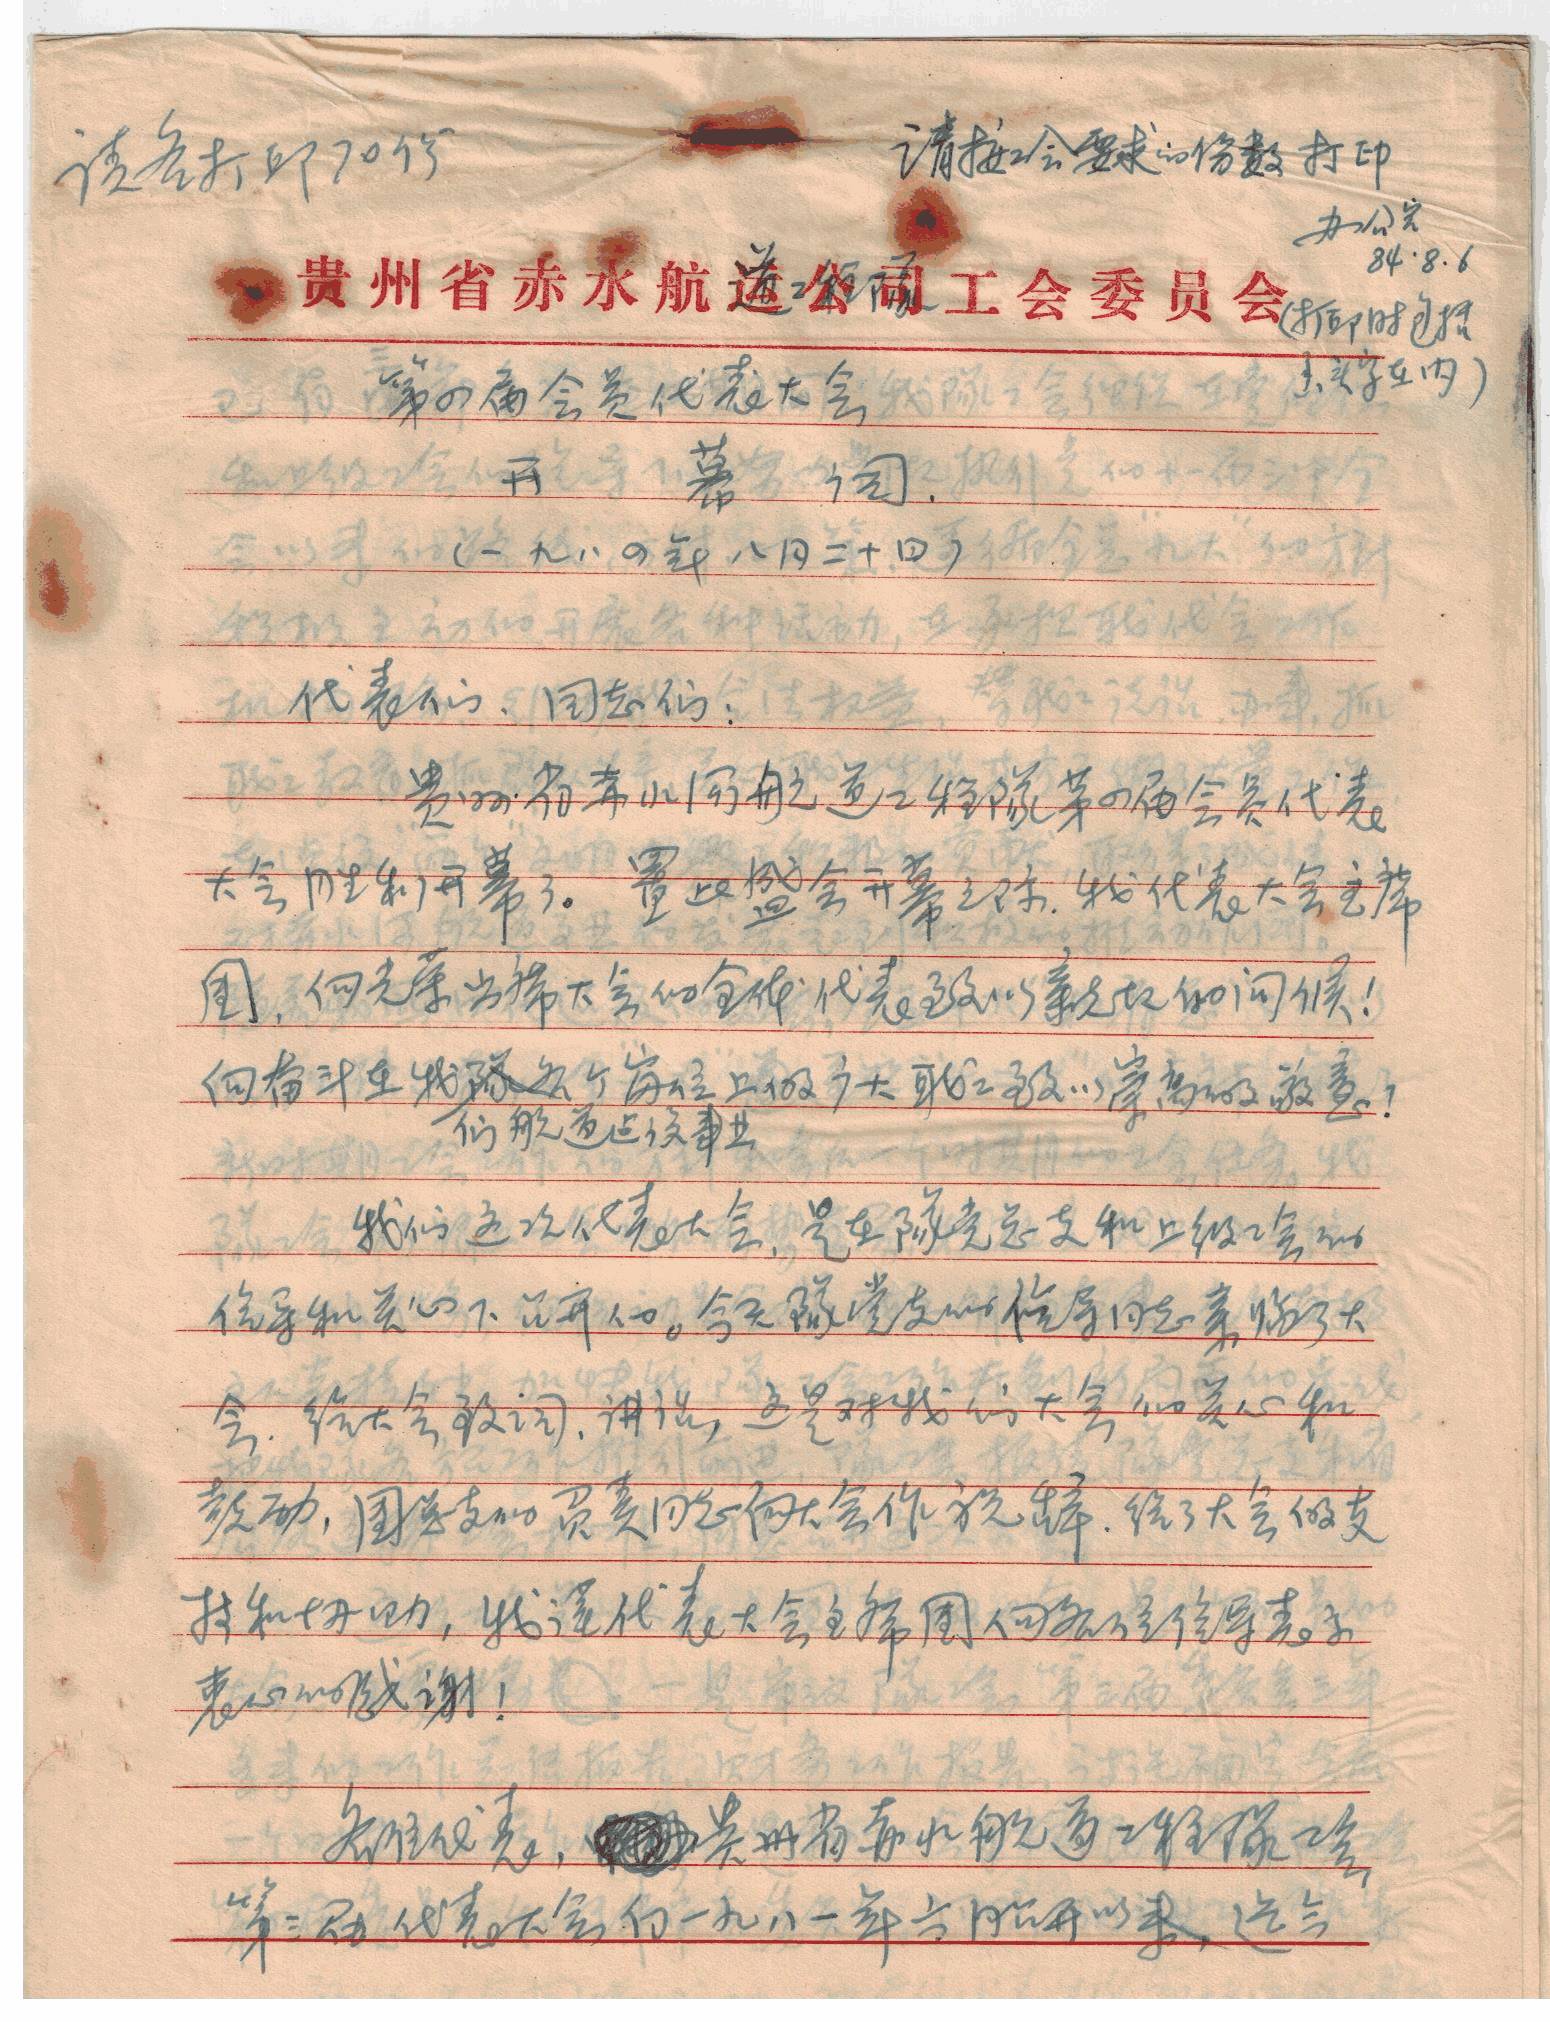 请各打印70份
请按工会要求的份数打印
办公室
84.8.6
(打印时包括
红头字在内)
贵州省赤水航运公司工会委员会
道工程队
第四届会员代表大会
开幕词.
(一九八四年八月二十四)
代表们、同志们:
贵州省赤水河航道工程队第四届会员代表
大会胜利开幕了。置此盛会开幕之际.我代表大会主席
团,向光荣出席大会的全体代表致以亲切的问候!
向奋斗在我队各个岗位上的广大职工致以崇高的敬意!
们航道建设事业
我们这次代表大会,是在队党总支和上级工会的
领导和关心下召开的。今天队党支的领导同志亲临了大
会.给大会致词、讲话,这是对我们大会的关心和
鼓励,团总支的负责同志向大会作祝辞.给了大会的支
持和协助,我谨代表大会主席团向各位领导表示
衷心的感谢!
各位代表,贵州省赤水航道工程队工会
第三届代表大会自一九八一年六月召开以来,迄今